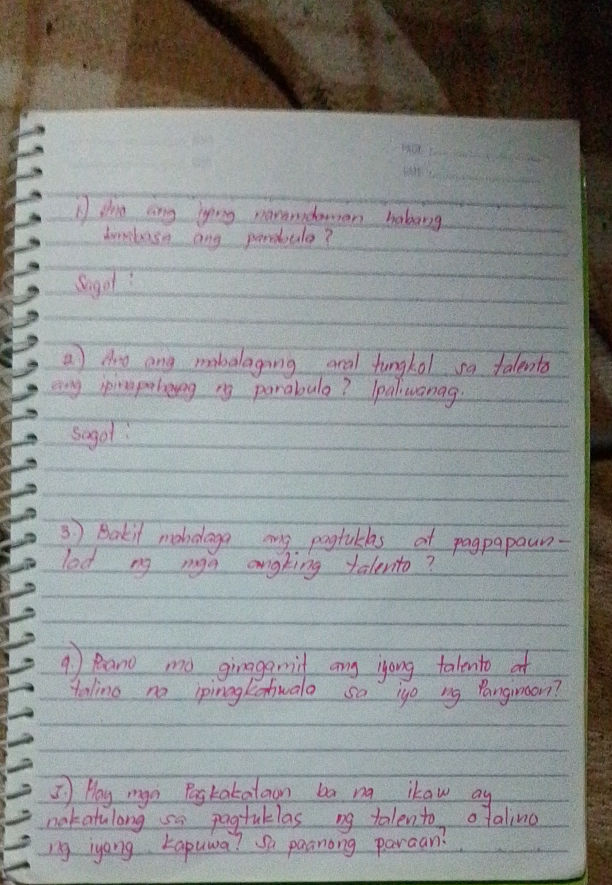 1) Ano ang iyong naramdaman habang
binabasa ang parabula?
Sagot:
2) Ano ang mahalagang aral tungkol sa talento
ang ipinapahayag ng parabula? Ipaliwanag.
Sagot:
3.) Bakit mahalaga ang pagtuklas at pagpapaun-
lad ng mga angking talento?
4.) Paano mo ginagamit ang iyong talento at
talino na ipinagkatiwala sa iyo ng Panginoon?
5.) May mga Pagkakataon ba na ikaw ay
nakatulong sa pagtuklas ng talento o talino
ng iyong kapuwa? Sa paanong paraan?